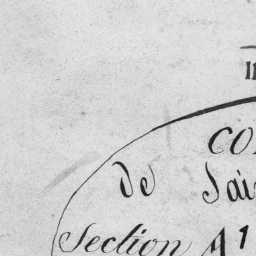 CO
de Sai
Section A 1